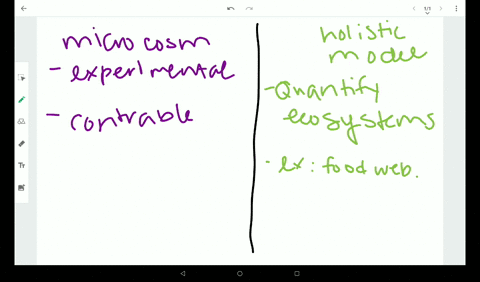 microcosm
- experimental
- contrable
holistic
model
- Quantify
ecosystems
- ex: food web.
1/1
Tr